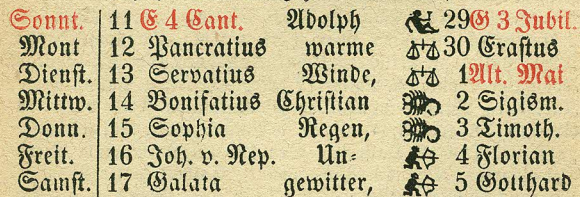 Sonnt. 11 E 4 Cant. Adolph 29 G 3 Jubil.
Mont 12 Pancratius warme 30 Erastus
Dienst. 13 Servatius Winde, 1 Alt. Mai
Mittw. 14 Bonifatius Christian 2 Sigism.
Donn. 15 Sophia Regen, 3 Timoth.
Freit. 16 Joh. v. Nep. Un- 4 Florian
Samst. 17 Galata gewitter, 5 Gotthard